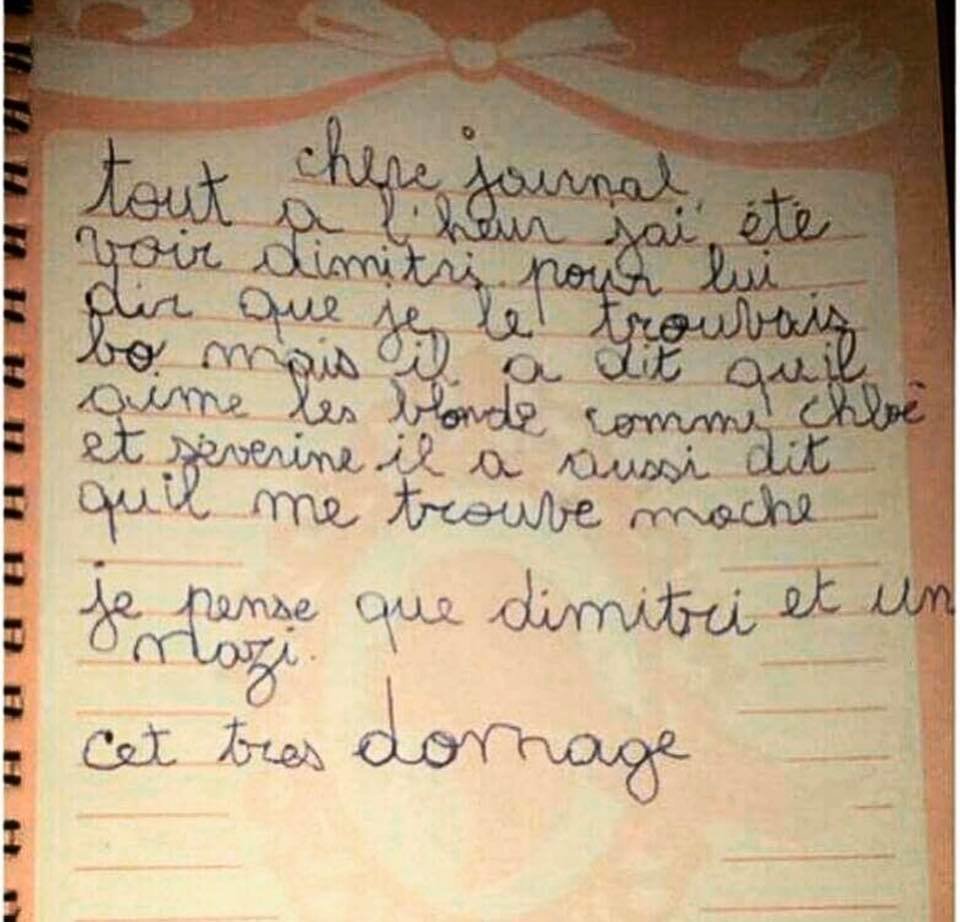 chere journal
tout a l'heur j'ai été
voir dimitri pour lui
dir que je le trouvais
bo mais il a dit qu'il
aime les blonde comme chloé
et séverine il a aussi dit
qu'il me trouve moche
je pense que dimitri et un
nazi.
cet tres domage